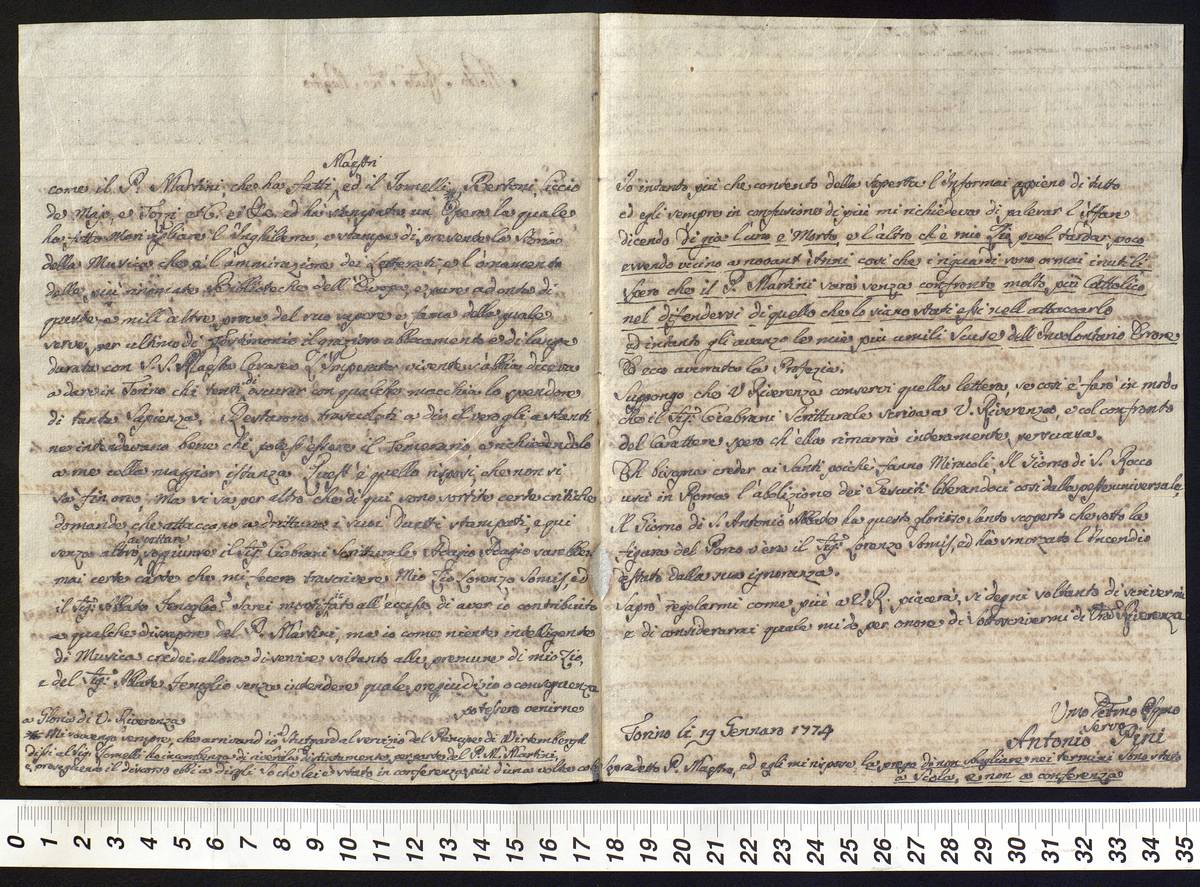 Maestri
come il P. Martini che ha fatti, ed il Jomelli, Bertoni, Ciccio
de Majo, e Tozzi &c. e &c. ed ha stampata un Opera la quale
ha fatto Maravigliare l'Inghilterra, e stampa di presente la Storia
della Musica che è l'ammirazione dei Letterati, e l'ornamento
delle più rinomate Biblioteche dell'Europa, e pure ad onta di
queste e mill'altre prove del suo sapere e fama della quale
serve per ultimo di Testimonio il grazioso abbocamento e di lunga
durata con S. S. Maestà Cesarea L'Imperator vivente s'abbia diceva
a dare in Torino chi tenti di oscurar con qualche macchia lo splendore
di tanta Sapienza. Restarono trasecolati a dir il vero gli astanti
ne intendevano bene chi potesse essere il Temerario, e richiedendolo
a me colla maggior istanza. Quest'è quello risposi, che non si
sa fin ora, Ma si sa per altro che di qui sono sortite certe critiche
domande che attaccano a drittura i suoi Duetti stampati, e qui
aspettare
senza altro soggiunse il Sigr. Ciabrani Scritturale Adagio, Adagio sarebbero
mai certe Carte che mi fecero trascrivere Mio Zio Lorenzo Somis, ed
il Sigr. Abbate Fenoglio? Sarei mortificato all'eccesso di aver io contribuito
a qualche dissapore del P. Martini, ma io come niente intelligente
di Musica credei allora di servire soltanto alle premure di mio Zio,
e del Sigr. Abbate Fenoglio senza intendere quale pregiudizio o conseguenza
potessero venirne
a Gloria di V. Riverenza
Mi sovvengo sempre, che arrivand'io a Stutgard al servizio del Principe di Wirtembergh
dissi al Sigr. Jomelli ha incombenza di riverirla distintamente per parte del P. M. Martini,
e proseguendo il discorso ebbi a dirgli So che lei è stato in conferenza più d'una volta col
Io intanto più che contento della scoperta l'Informai appieno di tutto
ed egli sempre in confusione di più mi richiedeva di palesar l'affare
dicendo Di già l'uno è Morto, e l'altro ch'è mio Zio puol tardar poco
essendo vicino a novant'Anni così che i riguardi sono ormai inutili
Spero che il P. Martini sarà senza confronto molto più Cattolico
nel difendersi di quello che lo siano stati essi nell'attaccarlo
ed intanto gli avanzo le mie più umili Scuse dell'Involontario Errore
Ed ecco averata la Profezia.
Suppongo che V Riverenza conservi quella lettera, se così è farò in modo
che il Sigr. Ciabrani Scritturale scriva a V. Riverenza, e col confronto
del Carattere spero ch'ella rimarrà interamente persuasa.
Eh bisogna creder ai Santi poichè fanno Miracoli Il Giorno di S. Rocco
uscì in Roma l'abolizione dei Gesuiti liberandoci così dalla peste universale,
Il Giorno di S. Antonio Abbate ha questo glorioso Santo scoperto che sotto la
figura del Porco v'era il Sigr. Lorenzo Somis, ed ha smorzato l'Incendio
destato dalla sua ignoranza.
Saprò regolarmi come più a V. R. piacerà, si degni soltanto di scrivermi
e di considerarmi quale mi dò per onore di sottoscrivermi di Vra Riverenza
Umo Devmo Obbgmo
Servre
Antonio Pini
Torino li 19 Gennaro 1774
lodato P. Maestro, ed egli mi rispose la prego di non sbagliare nei termini Sono stato
a Scola, e non a conferenza